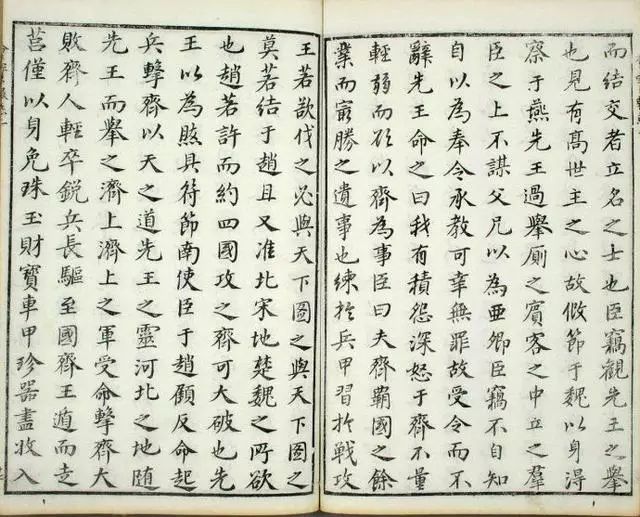 而結交者立名之士也臣竊觀先王之舉
也見有髙世主之心故假節于魏以身淂
察于燕先王過舉廁之賓客之中立之羣
臣之上不謀父兄以為亞卿臣竊不自知
自以為奉令承教可幸無罪故受令而不
辭先王命之曰我有積怨深怒于齊不量
輕弱而欲以齊為事臣曰夫齊霸國之餘
業而㝡勝之遺事也練於兵甲習於戰攻
王若欲伐之必與天下圖之與天下圖之
莫若結于趙且又淮北宋地楚魏之所欲
也趙若許而約四國攻之齊可大破也先
王以為然具符節南使臣于趙顧反命起
兵擊齊以天之道先王之靈河北之地隨
先王而舉之濟上濟上之軍受命擊齊大
敗齊人輕卒銳兵長驅至國齊王遁而走
莒僅以身免珠玉財寶車甲珍器盡收入